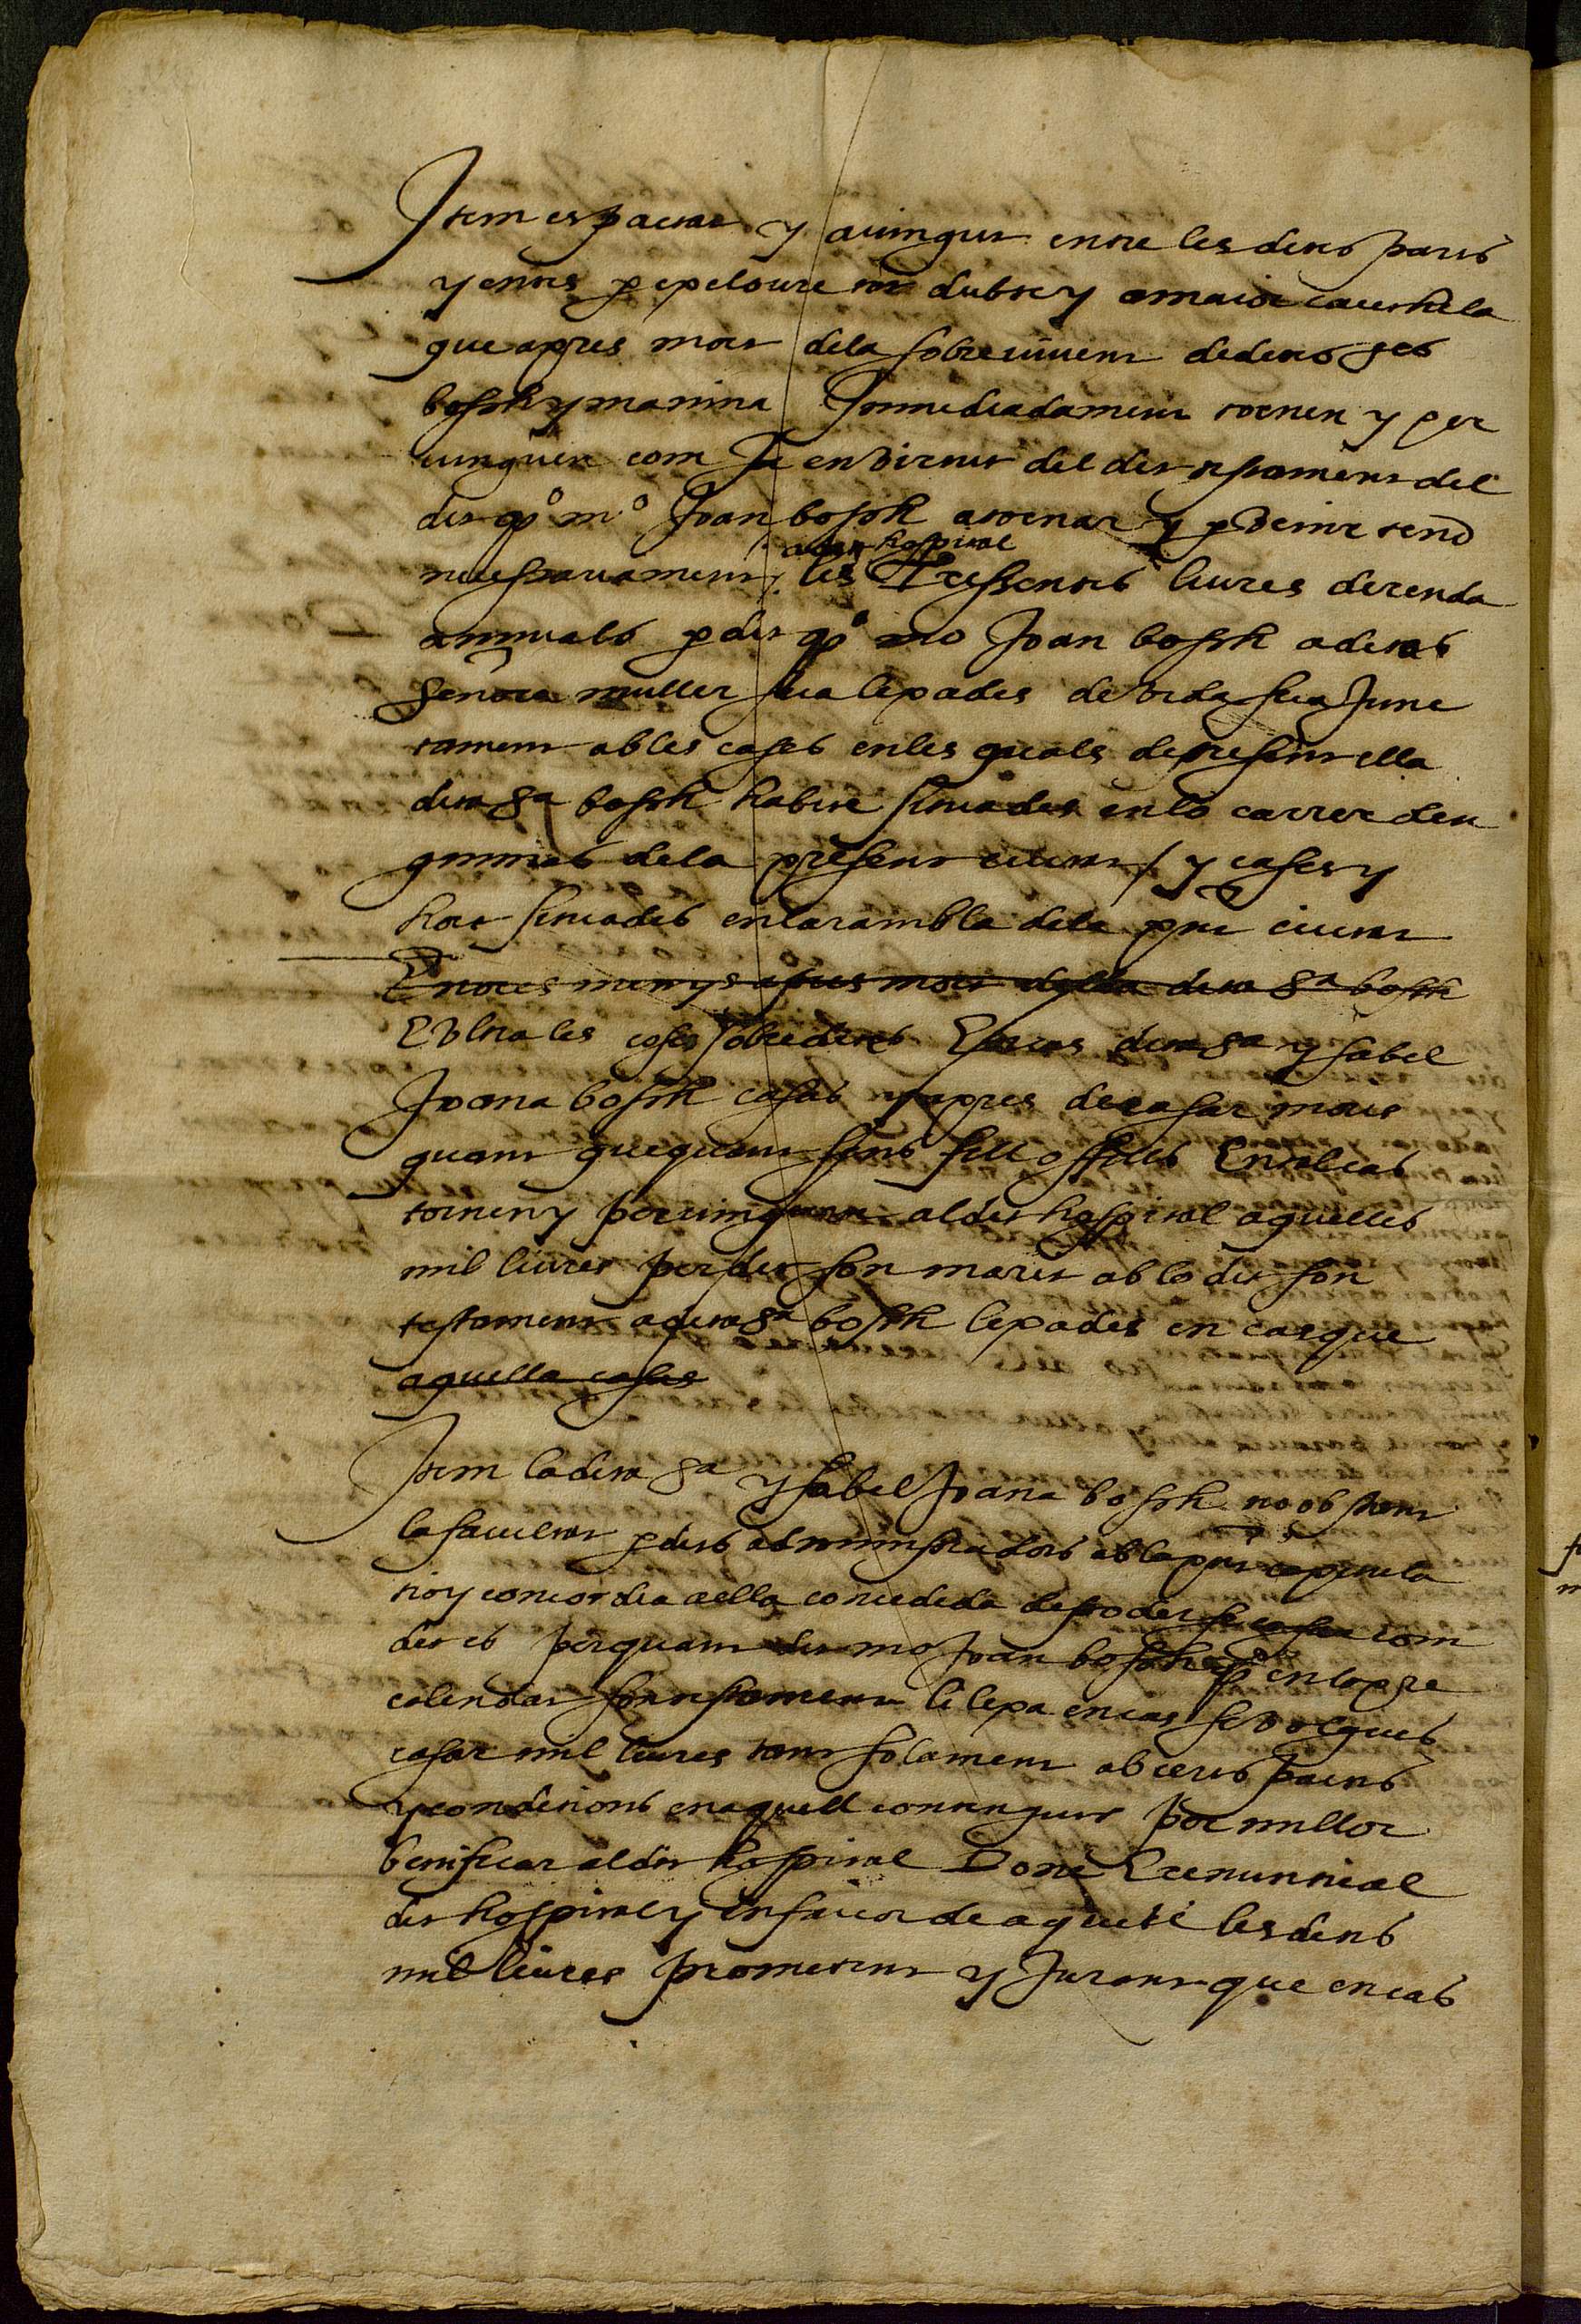 Item es pactat y avingut entre les dites parts
y entes p̱ e peloure tot dubte y a maior cauthela
que apres mort dela sobrevivent dedites ses
bosch y marina Immediadament tornen y per
vinguen com ja en virtut del dit testament del
dit qº mº Joan bosch a tornar y
a dit hospital
necessariament les Tressentes liures de renda
annuals p̱ dit qº mº Joan bosch a dita
senora muller sua lepades de vida sua Junc
tament ab les cases en les quals de present ella
dita sª bosch habite situades en lo carrer den
gimnas dela present ciutat / y cases y
hort situades en la rambla dela pnt ciutat
E no res menys apres mort de ella dita sª bosch
E ultra les coses sobredites En cas dita sª ysabel
Joana bosch casas y apres de casar moris
quant que quant sens fill o filles En tal cas
tornen y pervinguen al dit hospital aquelles
mil liures per dit son marit ab lo dit son
testament a dita sª bosch lepades en cas que
aquella casas
Item la dita sª ysabel Joana bosch no obstant
la facultat p̱ dits administradors ab la pnt capitula
tio y concordia a ella concedida de poder se casar com
dit es per quant dit mº Joan bosch qº en lo pre
calendat son testament li lepa en cas se volgues
casar mil liures tant solament ab certs pactes
y condicions en aquell contengudes per millor
benificar al dit hospital Done E renuncia al
dit hospital y en favor de aquell les dites
mil liures prometent y Jurant que en cas